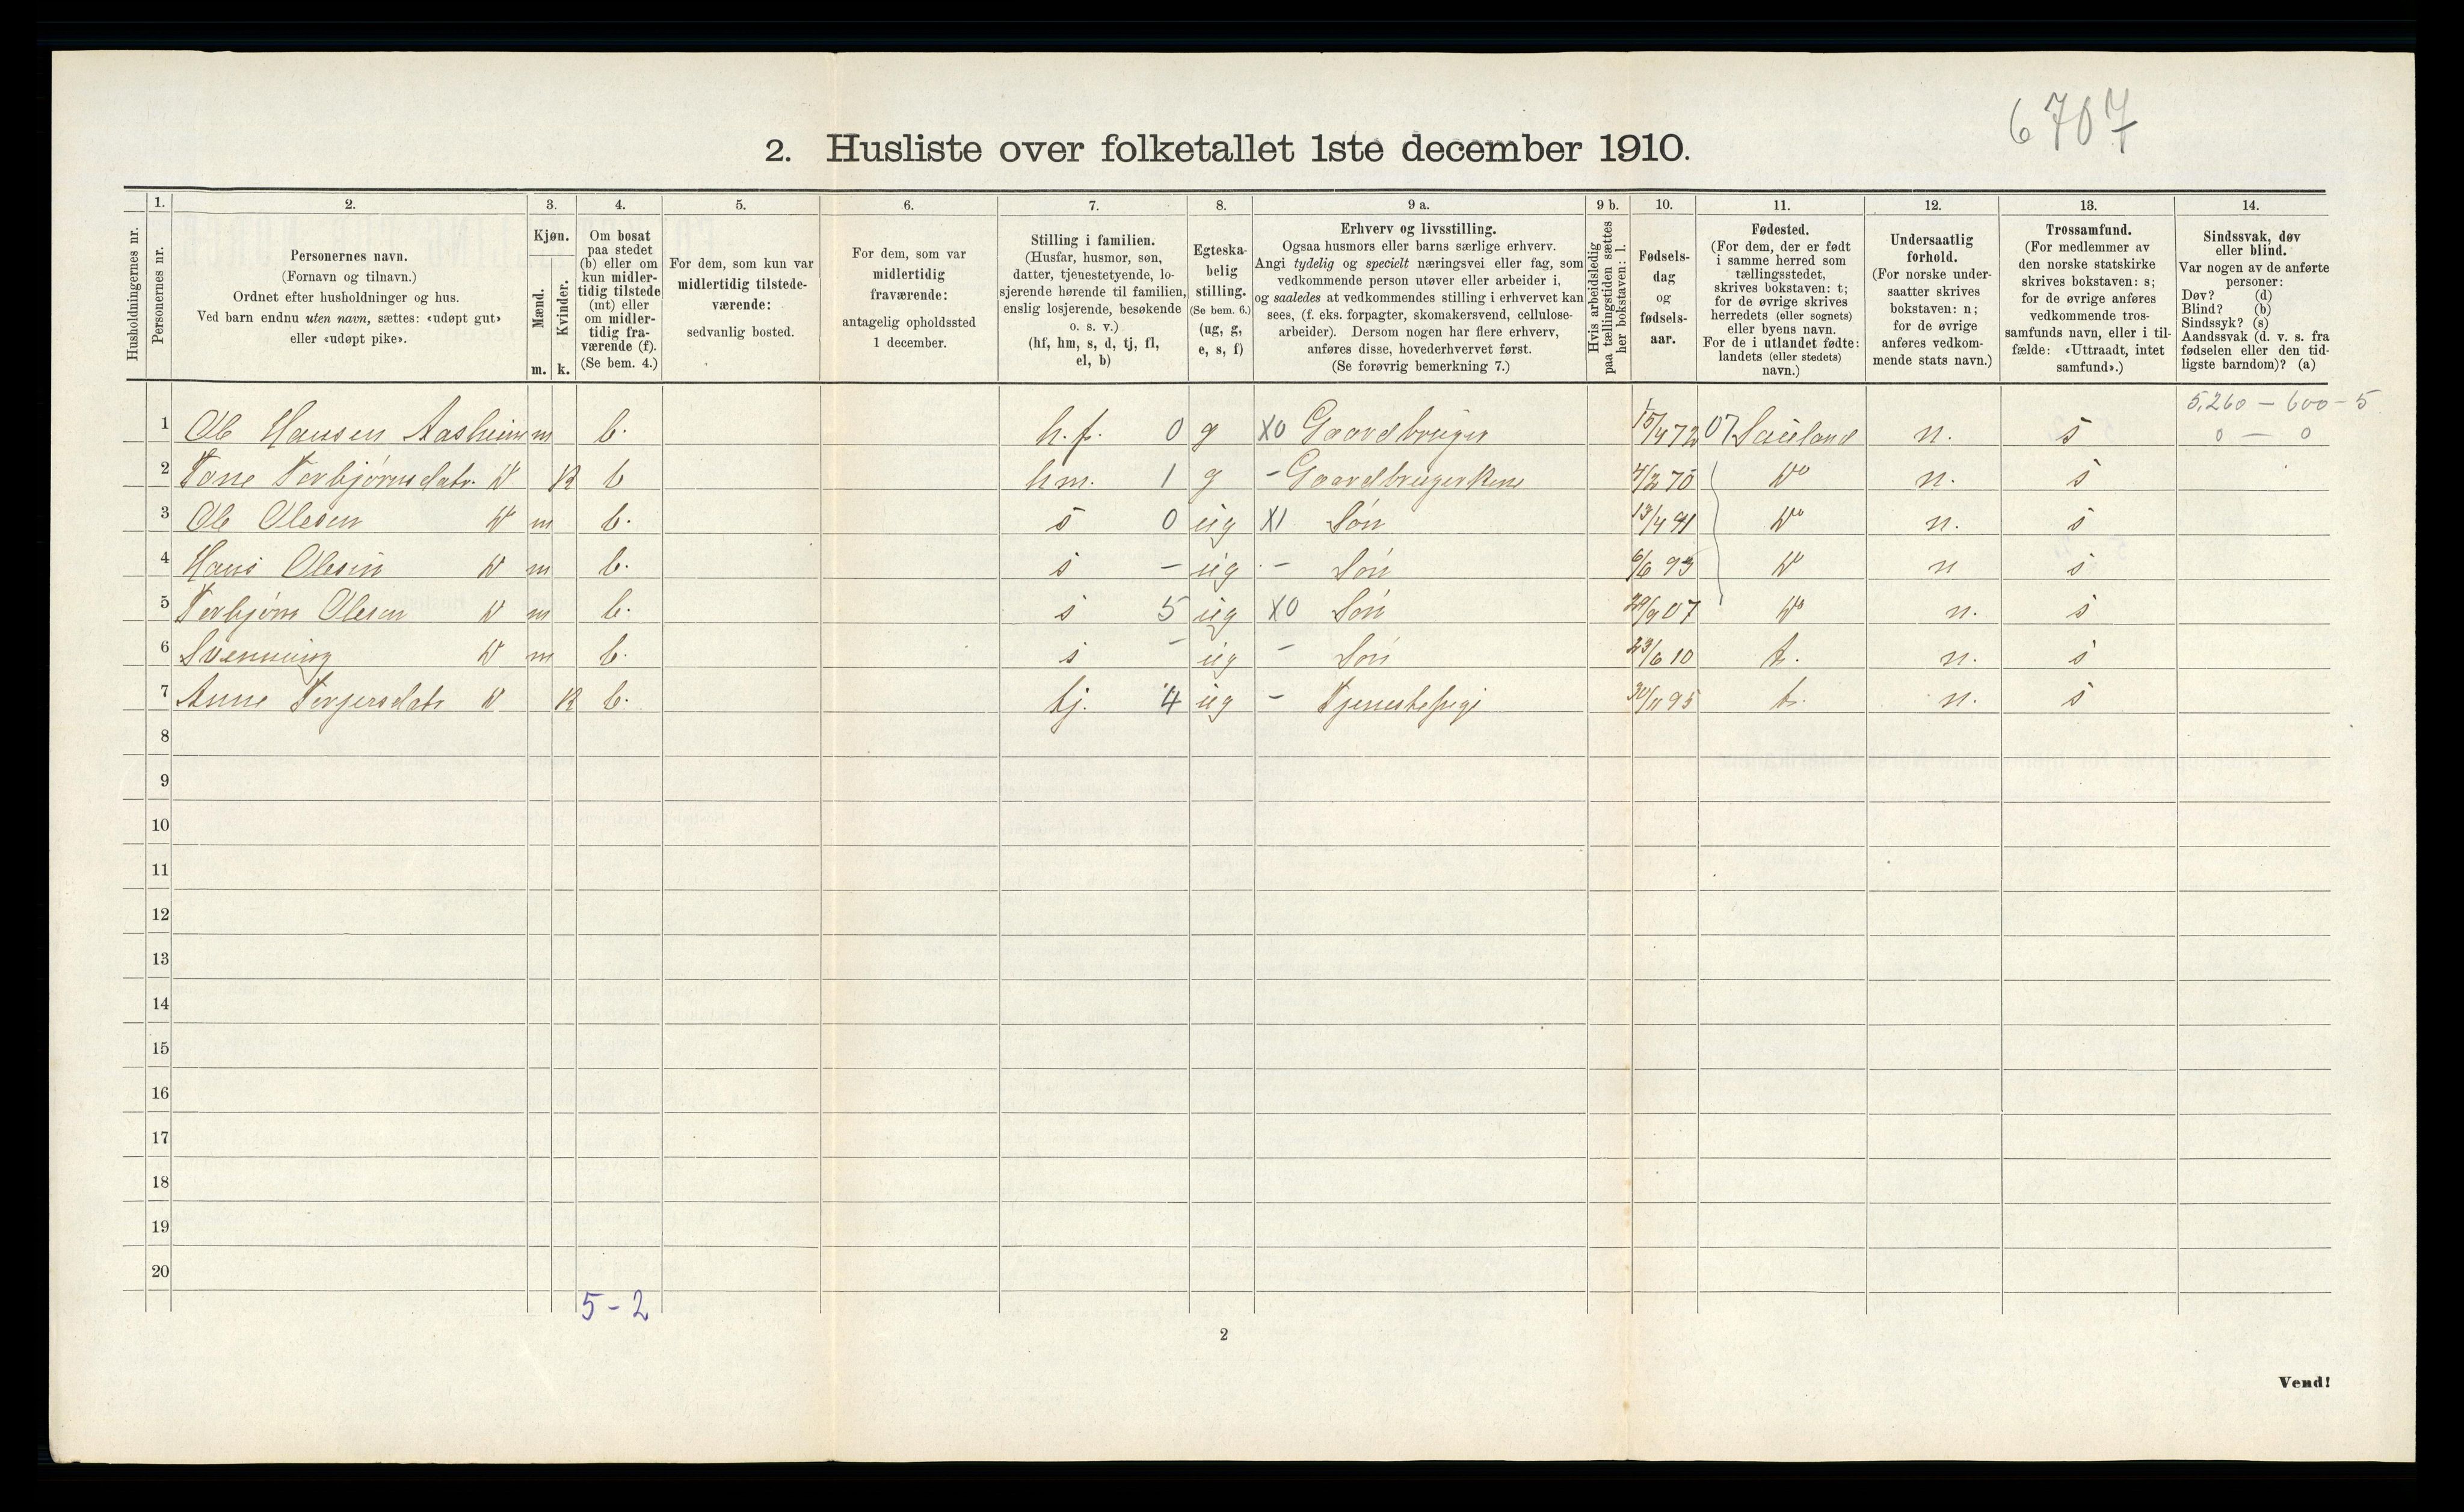 6707
2. Husliste over folketallet 1ste december 1910.
Husholdningernes nr.
1.
Personernes nr.
2.
Personernes navn.
(Fornavn og tilnavn.)
Ordnet efter husholdninger og hus.
Ved barn endnu uten navn, sættes: «udøpt gut»
eller «udøpt pike».
3.
Kjøn.
Mænd.
Kvinder.
m. k.
4.
Om bosat
paa stedet
(b) eller om
kun midler-
tidig tilstede
(mt) eller
om midler-
tidig fra-
værende (f).
(Se bem. 4.)
5.
For dem, som kun var
midlertidig tilstede-
værende:
sedvanlig bosted.
6.
For dem, som var
midlertidig
fraværende:
antagelig opholdssted
1 december.
7.
Stilling i familien.
(Husfar, husmor, søn,
datter, tjenestetyende, lo-
sjerende hørende til familien,
enslig losjerende, besøkende
o. s. v.)
(hf, hm, s, d, tj, fl,
el, b)
8.
Egteska-
belig
stilling.
(Se bem. 6.)
(ug, g,
e, s, f)
9 a.
Erhverv og livsstilling.
Ogsaa husmors eller barns særlige erhverv.
Angi tydelig og specielt næringsvei eller fag, som
vedkommende person utøver eller arbeider i,
og saaledes at vedkommendes stilling i erhvervet kan
sees, (f. eks. forpagter, skomakersvend, cellulose-
arbeider). Dersom nogen har flere erhverv,
anføres disse, hovederhvervet først.
(Se forøvrig bemerkning 7.)
9 b.
Hvis arbeidsledig
paa tællingstiden sættes
her bokstaven: l.
10.
Fødsels-
dag
og
fødsels-
aar.
11.
Fødested.
(For dem, der er født
i samme herred som
tællingsstedet,
skrives bokstaven: t;
for de øvrige skrives
herredets (eller sognets)
eller byens navn.
For de i utlandet fødte:
landets (eller stedets)
navn.)
12.
Undersaatlig
forhold.
(For norske under-
saatter skrives
bokstaven: n;
for de øvrige
anføres vedkom-
mende stats navn.)
13.
Trossamfund.
(For medlemmer av
den norske statskirke
skrives bokstaven: s;
for de øvrige anføres
vedkommende tros-
samfunds navn, eller i til-
fælde: «Uttraadt, intet
samfund».)
14.
Sindssvak, døv
eller blind.
Var nogen av de anførte
personer:
Døv? (d)
Blind? (b)
Sindssyk? (s)
Aandssvak (d. v. s. fra
fødselen eller den tid-
ligste barndom)? (a)
5,260 - 600 - 5
1 Ole Hansen Aasheim m b. h.f. 0 g X0 Gaardbruger 15/4 72 07 Sauland n. s 0 - 0
2 Tone Torbjørnsdatr. Do k b hm. 1 g - Gaardbrugerkone 4/2 70 Do n. s
3 Ole Olesen Do m b. s 0 ug X1 Søn 13/4 91 Do n. s
4 Hans Olesen Do m b. s - ug - Søn 6/6 93 Do n s
5 Torbjørn Olesen Do m b. s 5 ug X0 Søn 29/9 07 Do n. s
6 Svenning Do m b. s - ug - Søn 23/6 10 t. n. s
7 Anne Torjersdatr Do k b. tj. 4 ug - Tjenestepige 30/11 95 t. n. s
8
9
10
11
12
13
14
15
16
17
18
19
20
5-2
2
Vend!